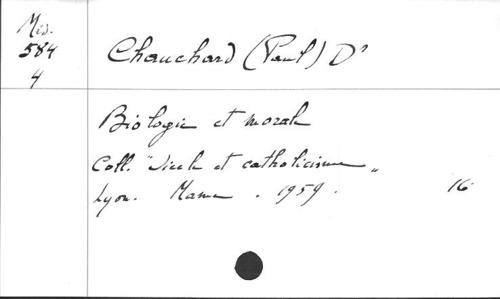 Méd.
584
4
Chauchard (Paul) Dr
Biologie et morale
Coll. "Siècle et catholicisme"
Lyon. Mame. 1959. 16